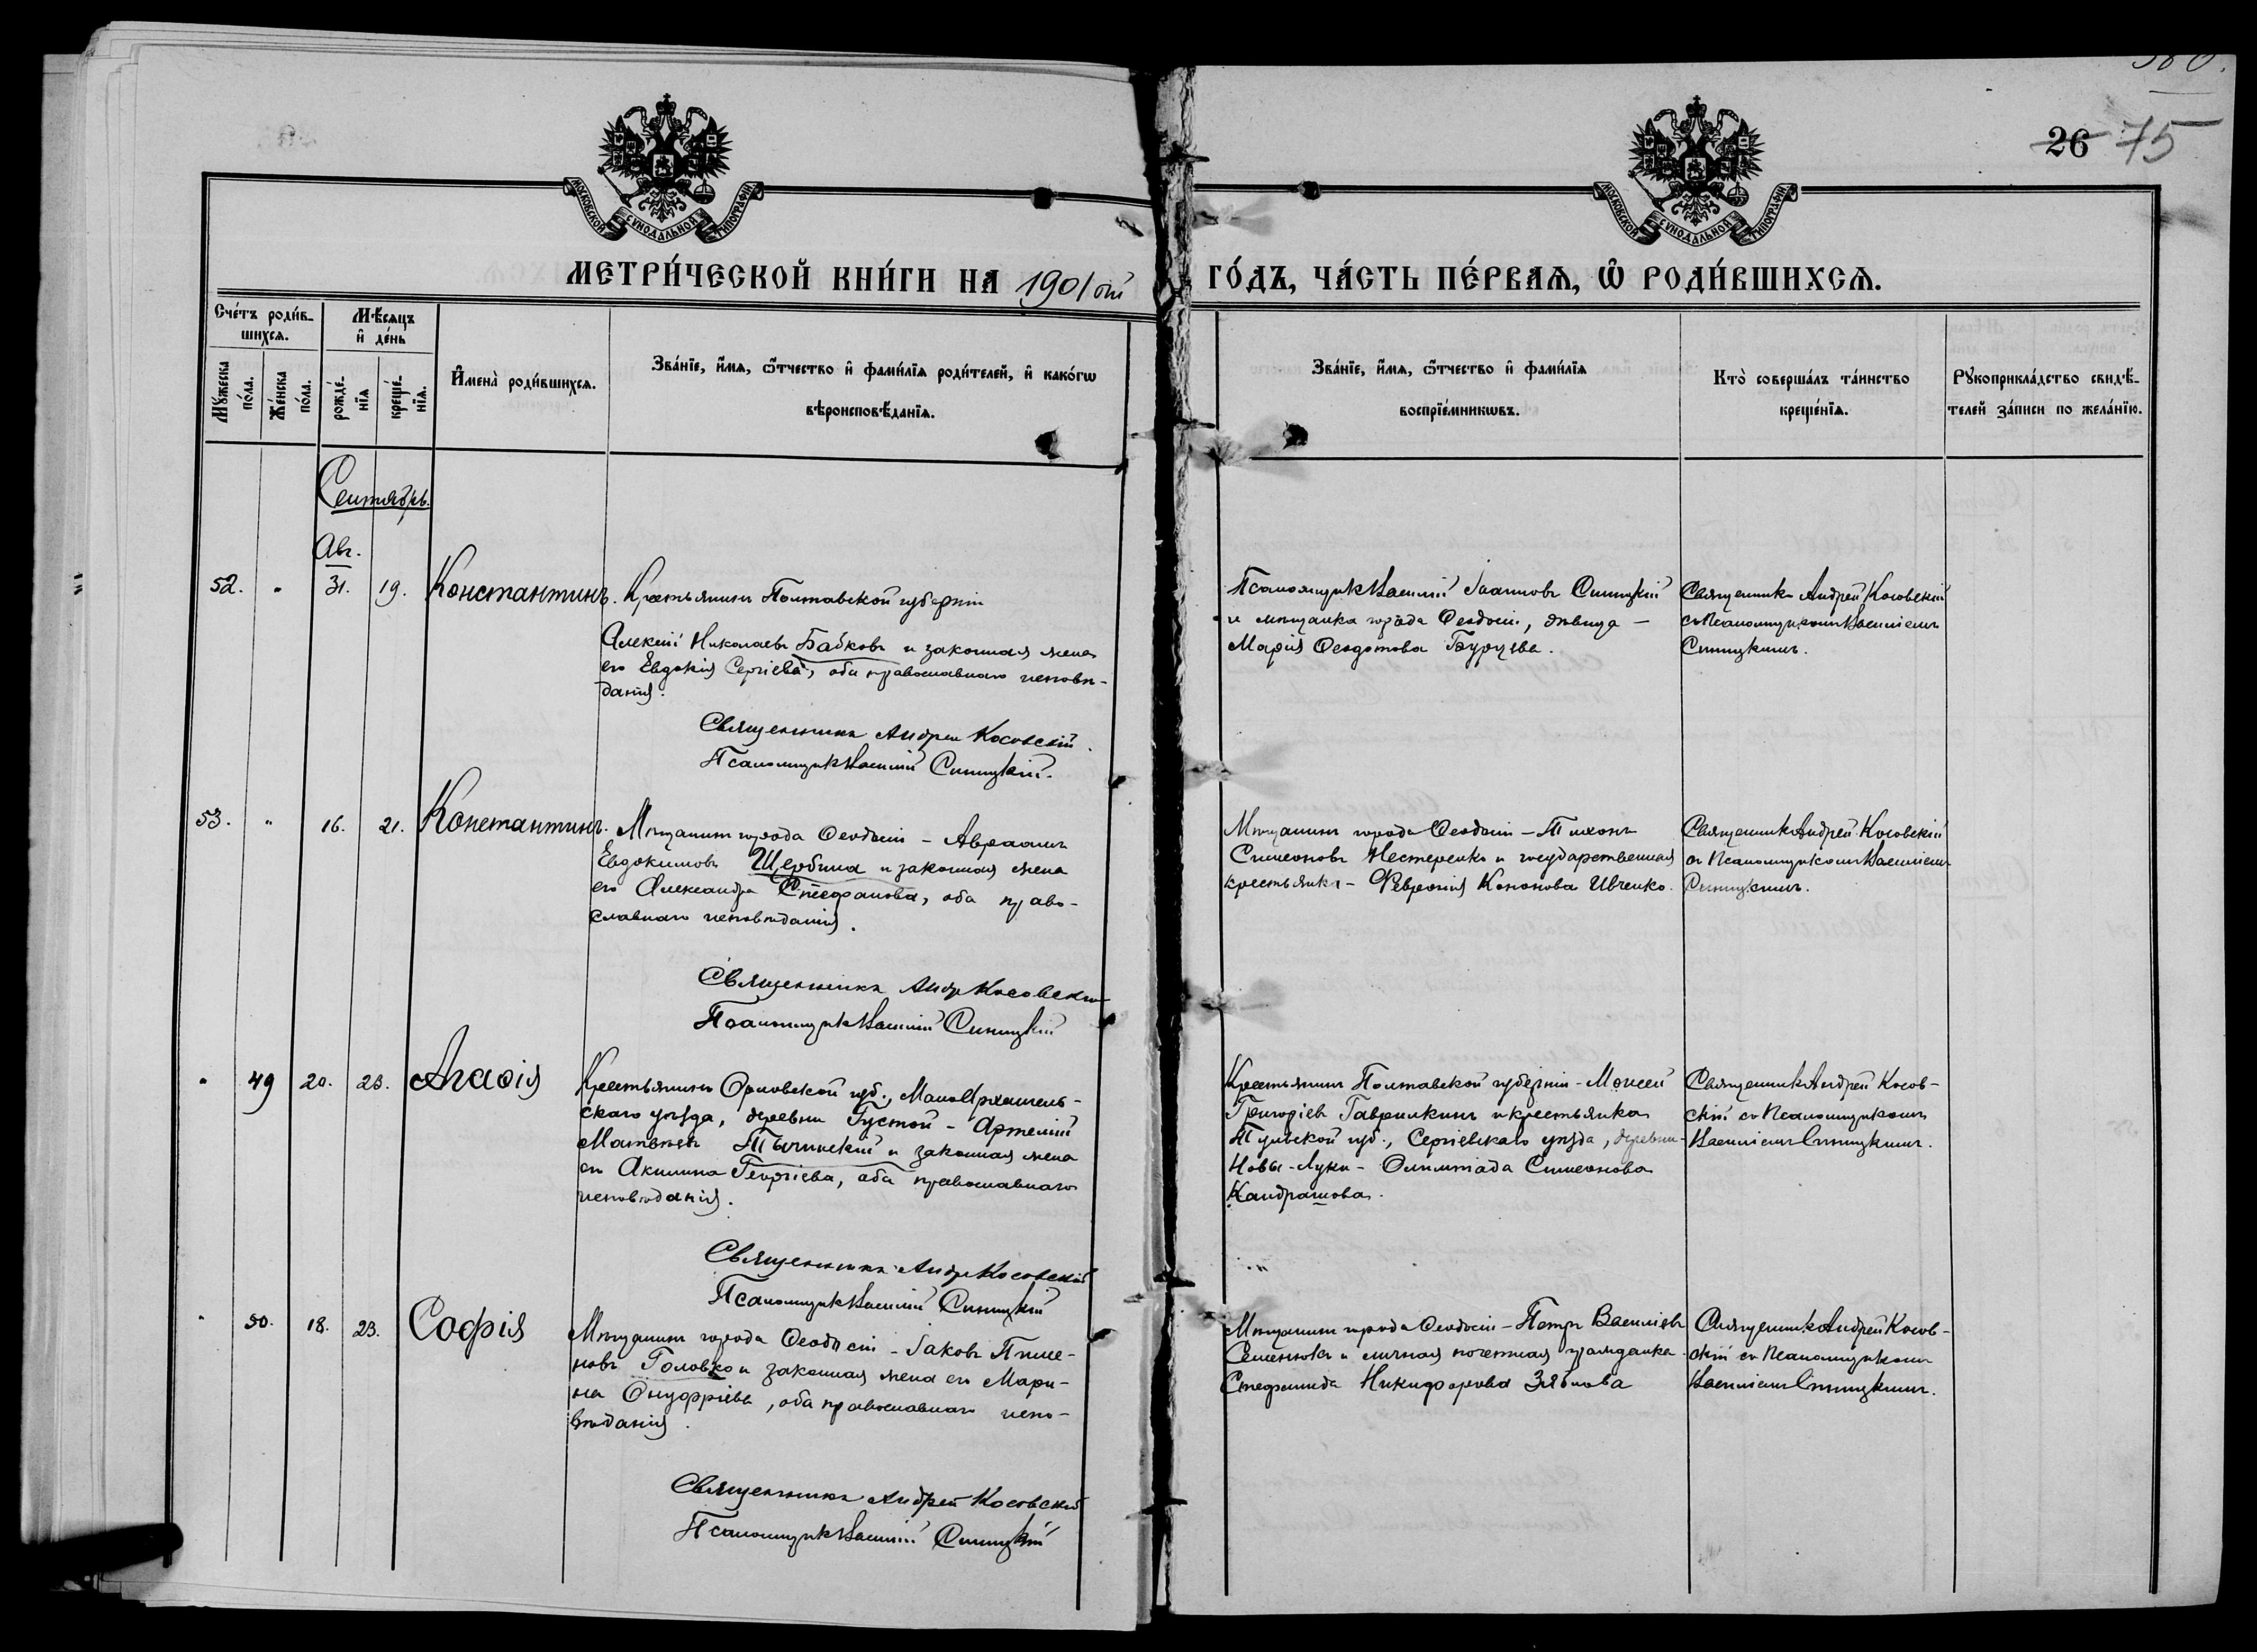 380.
26 75
МОСКОВСКОЙ СѴНОДАЛЬНОЙ ТИПОГРАФІИ
МОСКОВСКОЙ СѴНОДАЛЬНОЙ ТИПОГРАФІИ
МЕТРИ́ЧЕСКОЙ КНИ́ГИ НА 1901 ой ГО́ДЪ, ЧА́СТЬ ПЕ́РВАѦ, Ѡ҆ РОДИ́ВШИХСѦ.
Сче́тъ роди́в-
шихсѧ.
Мѣ́сѧцъ
и҆ де́нь
Мꙋ́жеска
по́ла.
Же́нска
по́ла.
рожде́-
нїѧ
креще́-
нїѧ.
И҆мена̀ роди́вшихсѧ.
Зва́нїе, и҆́мѧ, ѻ҆́тчество и҆ фами́лїѧ роди́телей, и҆ како́гѡ
вѣроисповѣ́данїѧ.
Зва́нїе, и҆́мѧ, ѻ҆́тчество и҆ фами́лїѧ
воспрїе́мникѡвъ.
Кто̀ соверша́лъ та́инство
креще́нїѧ.
Рꙋкоприкла́дство свидѣ́-
телей за́писи по жела́нїю.
Сентябрь.
Авг.
52. " 31. 19. Константинъ.
Крестьянинъ Полтавской губерніи
Алексій Николаевъ Бабковъ и законная жена
его Евдокія Сергіева, оба православнаго исповѣ-
данія.
Священникъ Андрей Косовскій.
Псаломщикъ Василій Синицкій.
Псаломщикъ Василій Іоанновъ Синицкій
и мѣщанка города Ѳеодосіи, дѣвица –
Марія Ѳеодотова Бурцева.
Священникъ Андрей Косовскій
съ Псаломщикомъ Василіемъ
Синицкимъ.
53. " 16. 21. Константинъ.
Мѣщанинъ города Ѳеодосіи – Авраамъ
Евдокимовъ Щербина и законная жена
его Александра Стефанова, оба право-
славнаго исповѣданія.
Священникъ Андр Косовскій
Псаломщикъ Василій Синицкій
Мѣщанинъ города Ѳеодосіи – Тихонъ
Симеоновъ Нестеренко и государственная
крестьянка – Февронія Кононова Ивченко.
Священникъ Андрей Косовскій
съ Псаломщикомъ Василіемъ
Синицкимъ.
" 49 20. 23. Агаѳія
Крестьянинъ Орловской губ., МалоАрхангель-
скаго уѣзда, деревни Густой – Артемій
Матвѣевъ Тычинскій и законная жена
его Акилина Георгіева, оба православнаго
исповѣданія.
Священникъ Андр Косовскій
Псаломщикъ Василій Синицкій
Крестьянинъ Полтавской губерніи – Моисей
Григоріевъ Гаврилкинъ и крестьянка
Тульской губ., Сергіевскаго уѣзда, деревни
Новы-Луки – Олимпіада Симеонова
Кандрашова.
Священникъ Андрей Косов-
скій съ Псаломщикомъ
Василіемъ Синицкимъ.
" 50. 18. 23. Софія
Мѣщанинъ города Ѳеодосіи – Іаковъ Пиме-
новъ Головко и законная жена его Мари-
на Онуфріева, оба православнаго испо-
вѣданія.
Священникъ Андрей Косовскій
Псаломщикъ Василій Синицкій
Мѣщанинъ города Ѳеодосіи – Петръ Василіевъ
Семенюкъ и личная почетная гражданка
Стефанида Никифорова Зяблова
Священникъ Андрей Косов-
скій съ Псаломщикомъ
Василіемъ Синицкимъ.